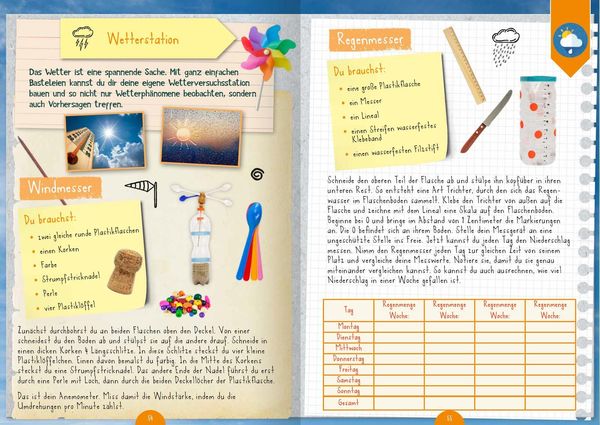 Wetterstation
Das Wetter ist eine spannende Sache. Mit ganz einfachen
Basteleien kannst du dir deine eigene Wetterversuchsstation
bauen und so nicht nur Wetterphänomene beobachten, sondern
auch Vorhersagen treffen.
Windmesser
Du brauchst:
zwei gleiche runde Plastikflaschen
einen Korken
Farbe
Strumpfstricknadel
Perle
vier Plastiklöffel
Zunächst durchbohrst du an beiden Flaschen oben den Deckel. Von einer
schneidest du den Boden ab und stülpst sie auf die andere drauf. Schneide in
einen dicken Korken 4 Längsschlitze. In diese Schlitze steckst du vier kleine
Plastiklöffelchen. Einen davon bemalst du farbig. In die Mitte des Korkens
steckst du eine Strumpfstricknadel. Das andere Ende der Nadel führst du erst
durch eine Perle mit Loch, dann durch die beiden Deckellöcher der Plastikflasche.
Das ist dein Anemometer. Miss damit die Windstärke, indem du die
Umdrehungen pro Minute zählst.
54
Regenmesser
Du brauchst:
eine große Plastikflasche
ein Messer
ein Lineal
einen Streifen wasserfestes
Klebeband
einen wasserfesten Filzstift
Schneide den oberen Teil der Flasche ab und stülpe ihn kopfüber in ihren
unteren Rest. So entsteht eine Art Trichter, durch den sich das Regen-
wasser im Flaschenboden sammelt. Klebe den Trichter von außen auf die
Flasche und zeichne mit dem Lineal eine Skala auf den Flaschenboden.
Beginne bei 0 und bringe im Abstand von 1 Zentimeter die Markierungen
an. Die 0 befindet sich an ihrem Boden. Stelle dein Messgerät an eine
ungeschützte Stelle ins Freie. Jetzt kannst du jeden Tag den Niederschlag
messen. Nimm den Regenmesser jeden Tag zur gleichen Zeit von seinem
Platz und vergleiche deine Messwerte. Notiere sie, damit du sie genau
miteinander vergleichen kannst. So kannst du auch ausrechnen, wie viel
Niederschlag in einer Woche gefallen ist.
Tag Regenmenge Woche: Regenmenge Woche: Regenmenge Woche: Regenmenge Woche:
Montag
Dienstag
Mittwoch
Donnerstag
Freitag
Samstag
Sonntag
Gesamt
55